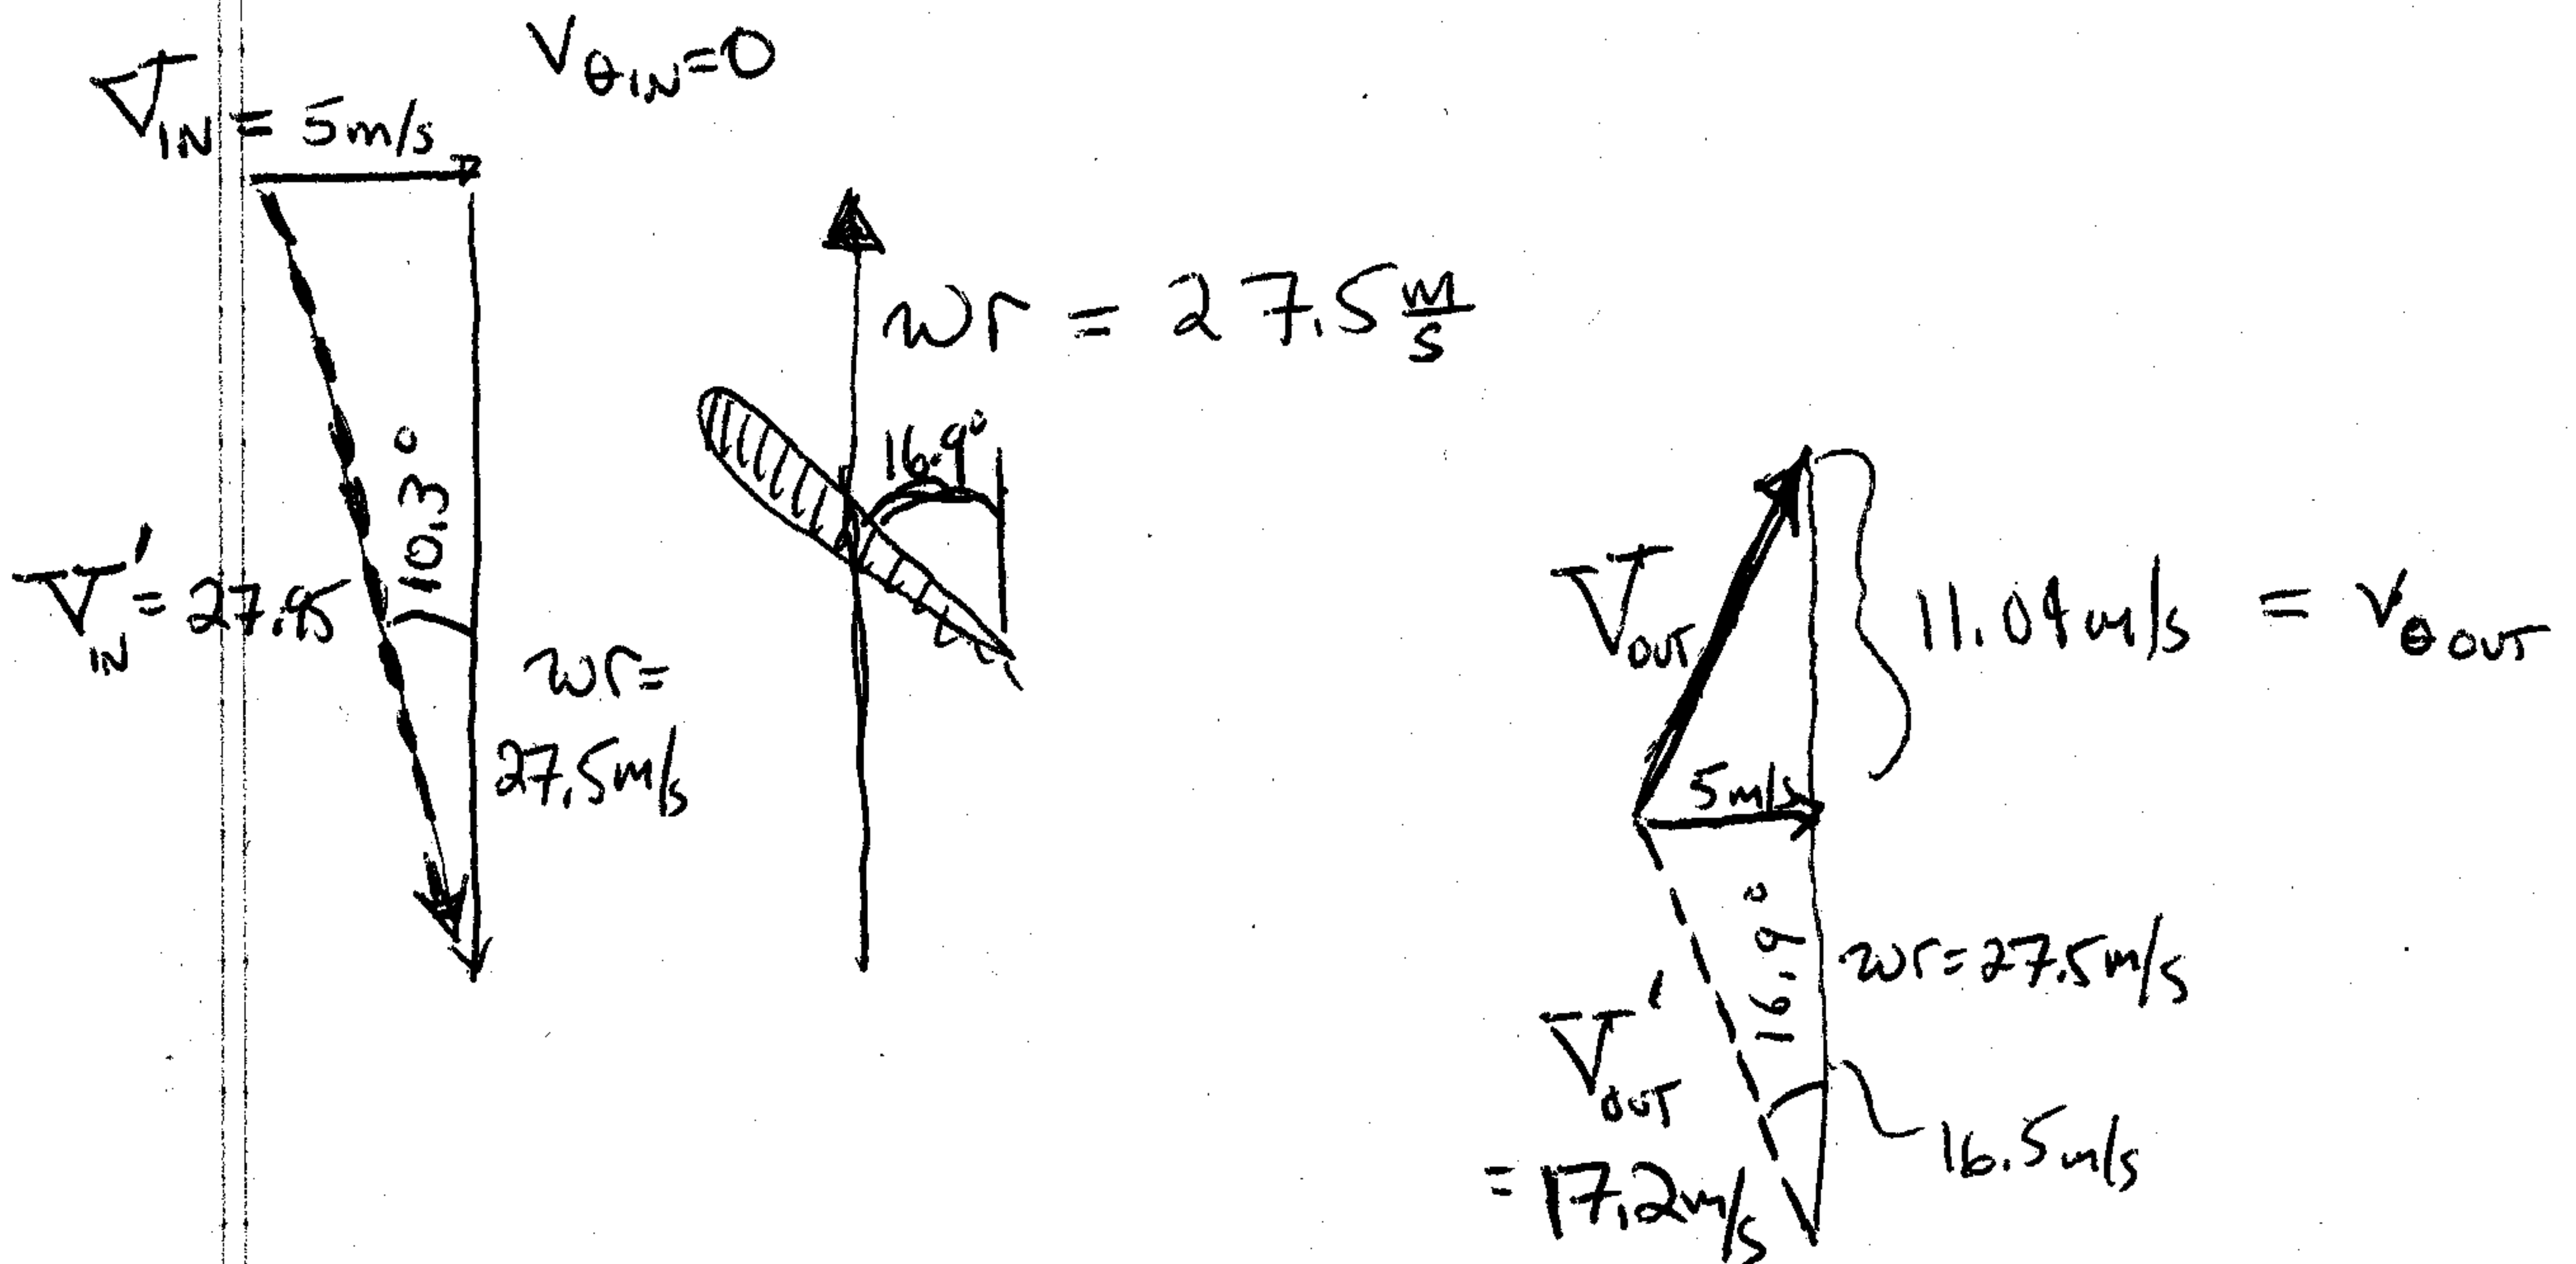 V_θIN = 0
V_IN = 5 m/s
ωr = 27.5 m/s
16.9°
10.3°
V'_IN = 27.95
ωr =
27.5 m/s
V_OUT
11.04 m/s = v_θ OUT
5 m/s
16.9°
ωr = 27.5 m/s
V'_OUT
= 17.2 m/s
16.5 m/s